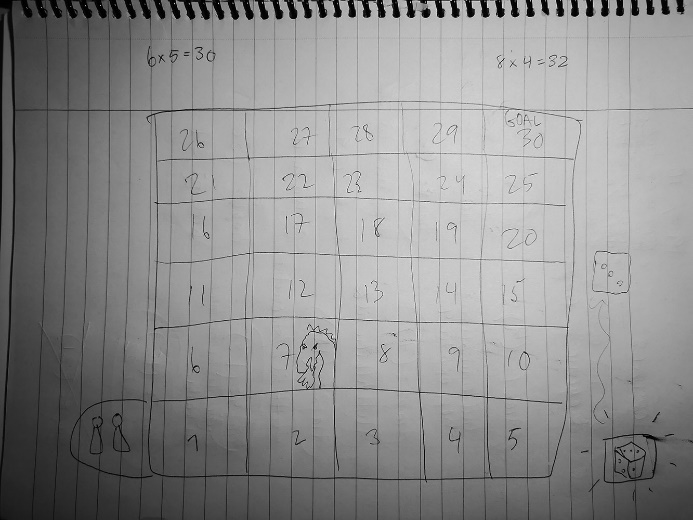 6x5=30
8x4=32
GOAL
26 27 28 29 30
21 22 23 24 25
16 17 18 19 20
11 12 13 14 15
6 7 8 9 10
1 2 3 4 5